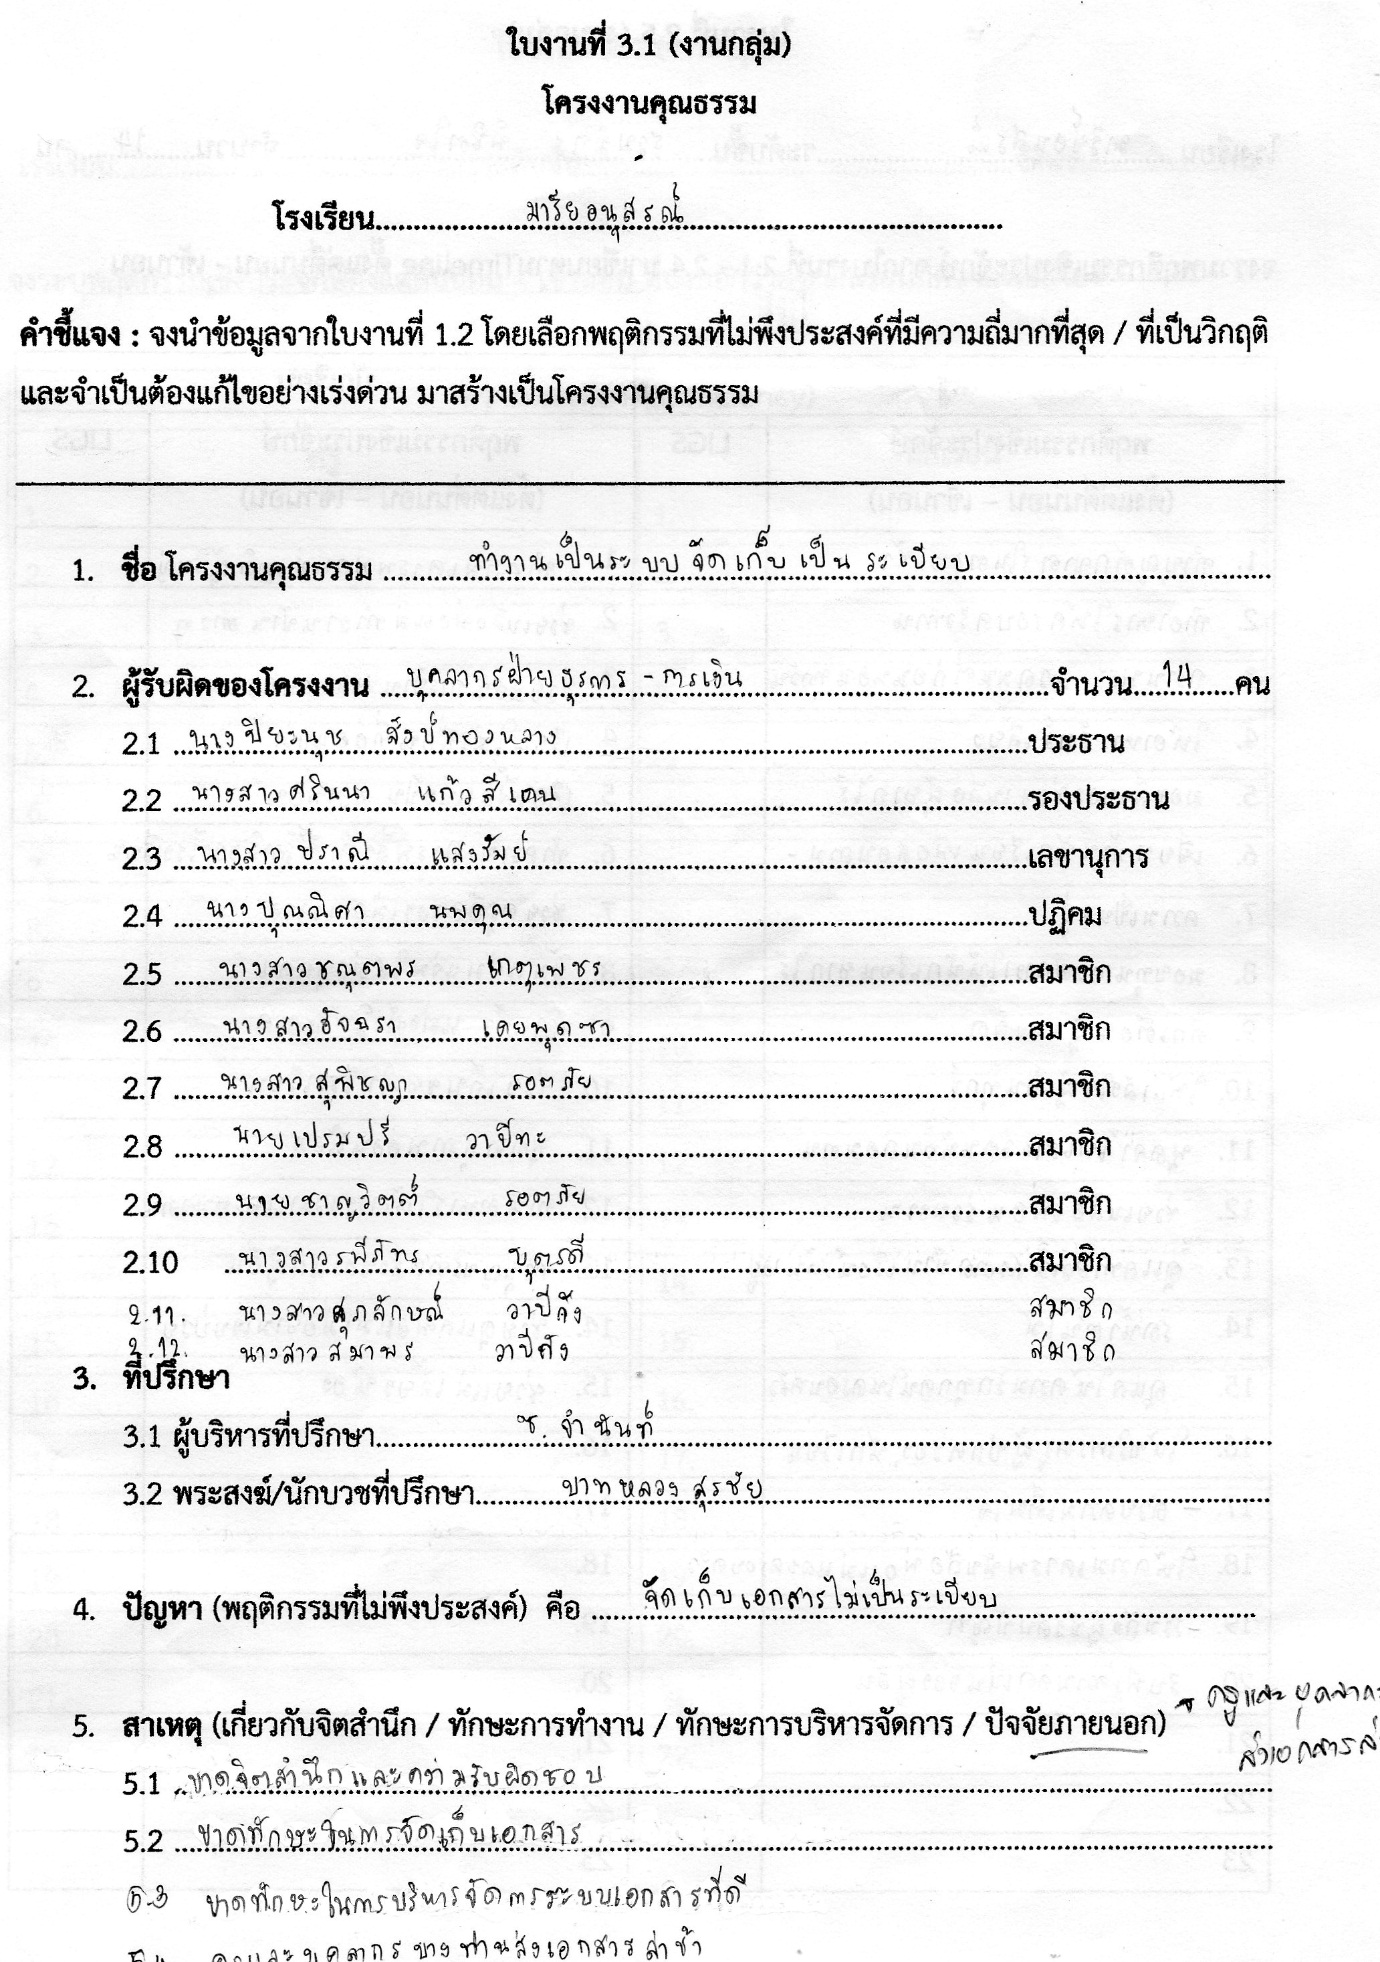 ใบงานที่ 3.1 (งานกลุ่ม)
โครงงานคุณธรรม
โรงเรียน มารีย์อนุสรณ์
คำชี้แจง : จงนำข้อมูลจากใบงานที่ 1.2 โดยเลือกพฤติกรรมที่ไม่พึงประสงค์ที่มีความถี่มากที่สุด / ที่เป็นวิกฤติ
และจำเป็นต้องแก้ไขอย่างเร่งด่วน มาสร้างเป็นโครงงานคุณธรรม
1. ชื่อ โครงงานคุณธรรม ทำงานเป็นระบบ จัดเก็บ เป็น ระเบียบ
2. ผู้รับผิดของโครงงาน บุคลากรฝ่ายธุรการ - การเงิน จำนวน 14 คน
2.1 นางปิยะนุช สังข์ทองหลาง ประธาน
2.2 นางสาวศรินนา แก้วสีเคน รองประธาน
2.3 นางสาวปราณี แสงรัมย์ เลขานุการ
2.4 นางปุณณิศา นพคุณ ปฏิคม
2.5 นางสาวชณุตพร เกตุเพชร สมาชิก
2.6 นางสาวอัจฉรา เคยพุดซา สมาชิก
2.7 นางสาวสุพิชญา รอตภัย สมาชิก
2.8 นายเปรมปรี วาปีทะ สมาชิก
2.9 นายชาญวิตต์ รอตภัย สมาชิก
2.10 นางสาวรพีภัทร บุตรดี สมาชิก
2.11. นางสาวศุภลักษณ์ วาปีกัง สมาชิก
2.12. นางสาวสมาพร วาปีกัง สมาชิก
3. ที่ปรึกษา
3.1 ผู้บริหารที่ปรึกษา ซ. จำนันท์
3.2 พระสงฆ์/นักบวชที่ปรึกษา บาทหลวงสุรชัย
4. ปัญหา (พฤติกรรมที่ไม่พึงประสงค์) คือ จัดเก็บเอกสารไม่เป็นระเบียบ
5. สาเหตุ (เกี่ยวกับจิตสำนึก / ทักษะการทำงาน / ทักษะการบริหารจัดการ / ปัจจัยภายนอก) ครูและบุคลาก
ส่งเอกสารล่
5.1 ขาดจิตสำนึกและความรับผิดชอบ
5.2 ขาดทักษะในการจัดเก็บเอกสาร
5.3 ขาดทักษะในการบริหารจัดการระบบเอกสารที่ดี
5.4 ครูและบุคลากรบางท่านส่งเอกสารล่าช้า